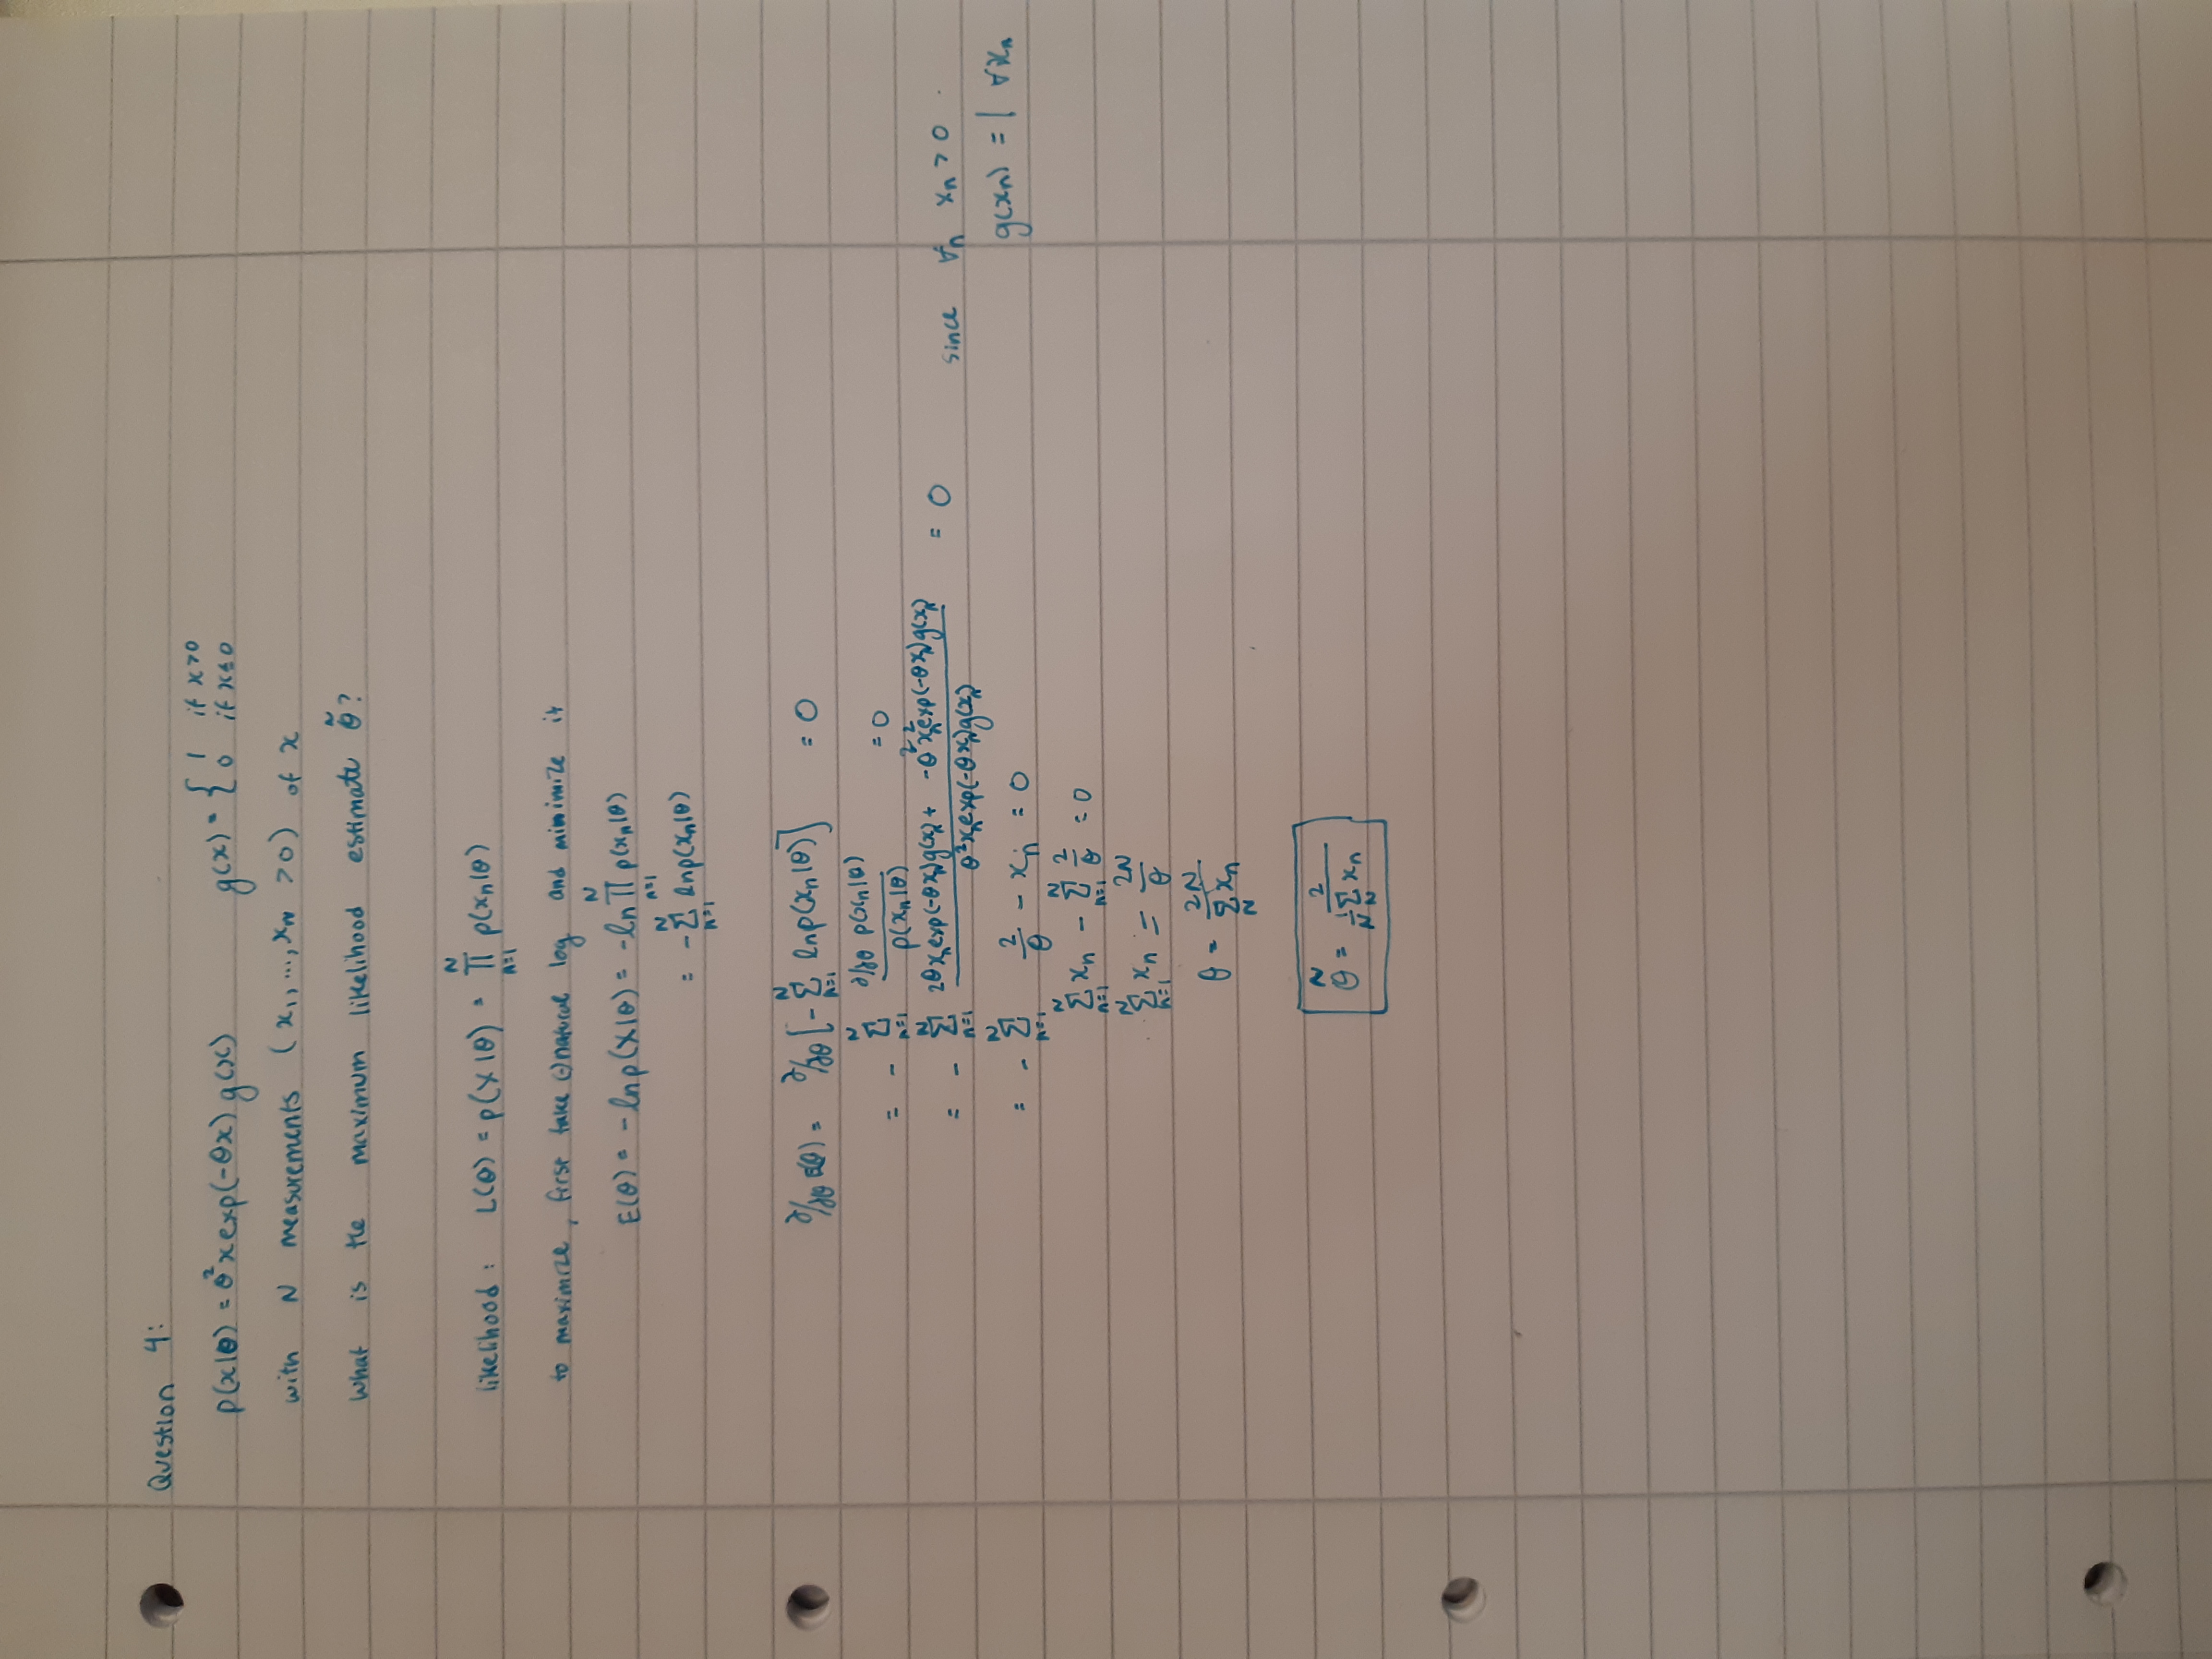 Question 4:
p(x|θ) = θ²x exp(-θx) g(x)   g(x) = { 1 if x>0
0 if x≤0
with N measurements (x₁,...,x_N >0) of x
What is the maximum likelihood estimate θ̃?
likelihood: L(θ) = p(X|θ) = ∏_{n=1}^{N} p(xₙ|θ)
to maximize, first take (-)natural log and minimize it
E(θ) = -ln p(X|θ) = -ln ∏_{n=1}^{N} p(xₙ|θ)
= -∑_{n=1}^{N} ln p(xₙ|θ)
∂/∂θ E(θ) = ∂/∂θ [-∑_{n=1}^{N} ln p(xₙ|θ)] = 0
= -∑_{n=1}^{N} (∂/∂θ p(xₙ|θ))/(p(xₙ|θ)) = 0
= -∑_{n=1}^{N} (2θxₙexp(-θxₙ)g(xₙ) + -θ²xₙ²exp(-θxₙ)g(xₙ))/(θ²xₙexp(-θxₙ)g(xₙ)) = 0   since ∀n xₙ > 0
g(xₙ) = 1 ∀xₙ
= -∑_{n=1}^{N} 2/θ - xₙ = 0
∑_{n=1}^{N} xₙ - ∑_{n=1}^{N} 2/θ = 0
∑_{n=1}^{N} xₙ = 2N/θ
θ = 2N/(∑_N xₙ)
θ̃ = 2/(1/N ∑_N xₙ)